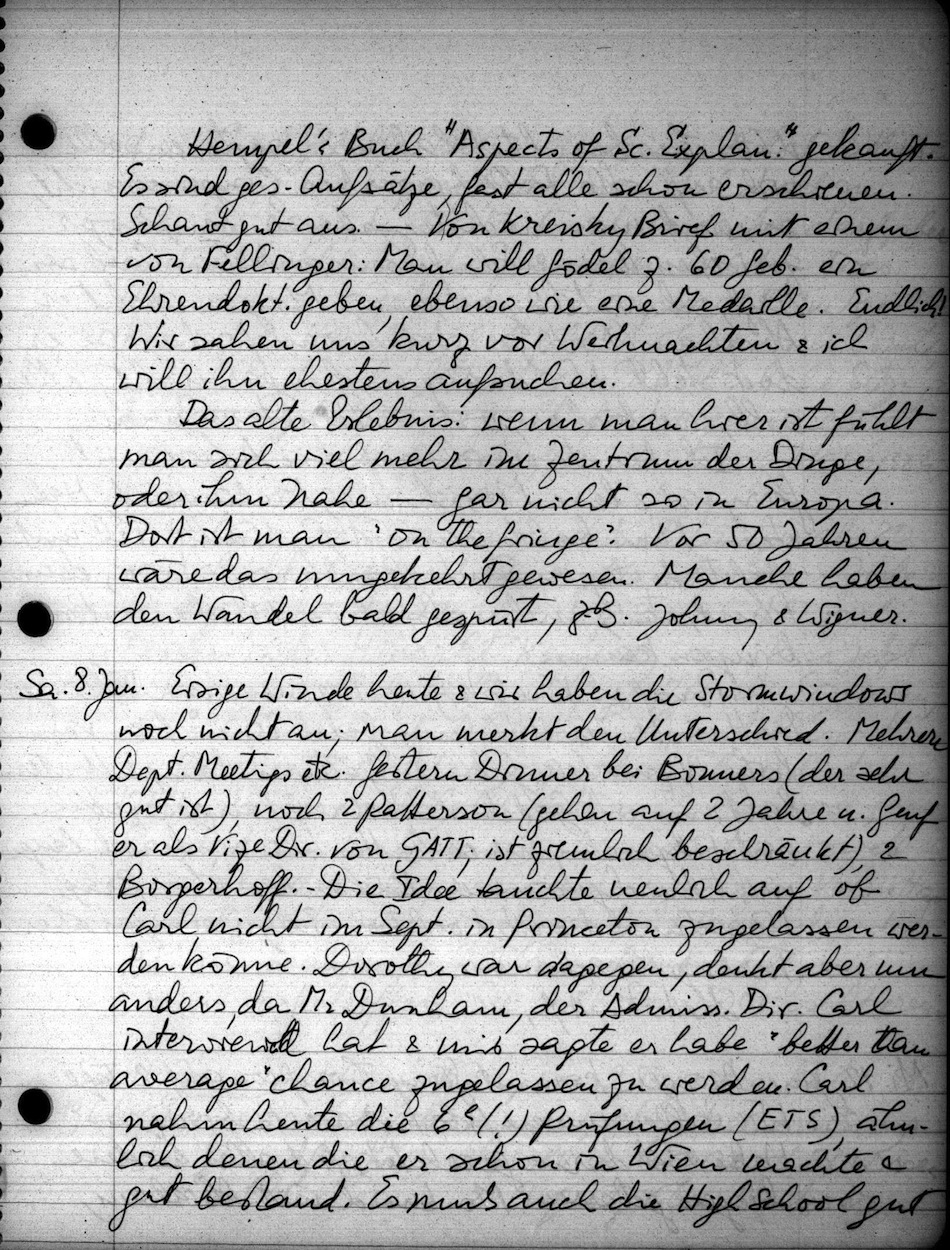 Hempel's Buch "Aspects of Sc. Explan." gekauft.
Es sind ges. Aufsätze, fast alle schon erschienen.
Schaut gut aus. — Von Kreisky Brief mit einem
von Fellinger: Man will Gödel z. 60 Geb. ein
Ehrendokt. geben, ebenso wie eine Medaille. Endlich!
Wir sahen uns kurz vor Weihnachten & ich
will ihn ehestens aufsuchen.
Das alte Erlebnis: wenn man hier ist fühlt
man sich viel mehr im Zentrum der Dinge,
oder ihm nahe — gar nicht so in Europa.
Dort ist man 'on the fringe'. Vor 50 Jahren
wäre das umgekehrt gewesen. Manche haben
den Wandel bald gespürt, zB. Johnny & Wigner.
Sa. 8. Jan. Eisige Winde heute & wir haben die Stormwindows
noch nicht an; man merkt den Unterschied. Mehrere
Dept. Meetigs etc. Gestern Dinner bei Bonners (der sehr
gut ist), noch 2 Patterson (gehen auf 2 Jahre n. Genf
er als Vize Dir. von GATT, ist ziemlich beschränkt), 2
Borgerhoff. - Die Idee tauchte neulich auf ob
Carl nicht im Sept. in Princeton zugelassen wer-
den könne. Dorothy war dagegen, denkt aber nun
anders, da Mr Dunham, der Admiss. Dir. Carl
interviewt hat & mir sagte er habe "better than
average" chance zugelassen zu werden. Carl
nahm heute die 6 (!) Prüfungen (ETS), ähn-
lich denen die er schon in Wien machte &
gut bestand. Es muß auch die High School gut